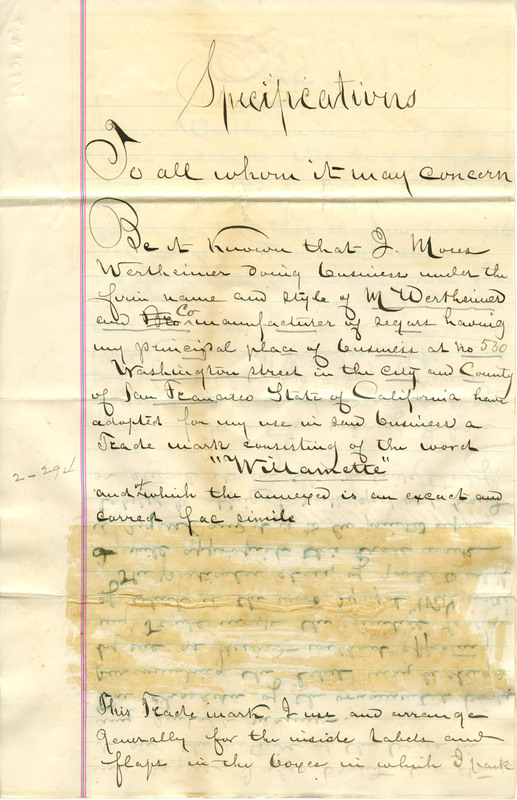 Specifications
To all whom it may concern
Be it known that I. Moses
Wertheimer doing business under the
firm name and style of M Wertheimer
and Co manufacturer of segars having
my principal place of business at no 530
Washington street in the City and County
of San Francisco State of California have
adopted for my use in said business a
Trade mark consisting of the word
"Willamette"
2-294
and of which the annexed is an excact and
correct fac simile
This Trade mark I use and arrange
generally for the inside labels and
flaps in the boxes in which I pack